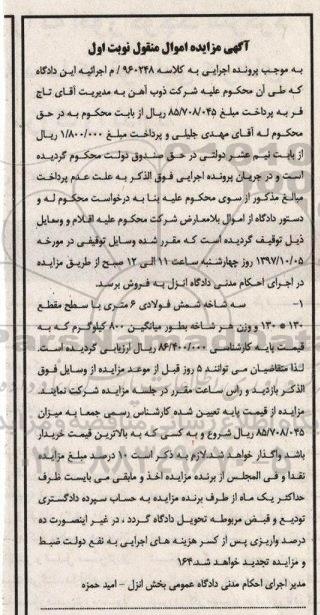 آگهی مزایده اموال منقول نوبت اول
به موجب پرونده اجرایی به کلاسه ۹۶۰۲۴۸ / م اجرائیه این دادگاه
که طی آن محکوم علیه شرکت ذوب آهن به مدیریت آقای تاج
فر به پرداخت مبلغ ۸۵/۷۰۸/۰۴۵ ریال از بابت محکوم به در حق
محکوم له آقای مهدی جلیلی و پرداخت مبلغ ۱/۸۰۰/۰۰۰ ریال
از بابت نیم عشر دولتی در حق صندوق دولت محکوم گردیده
است و در جریان پرونده اجرایی فوق الذکر به علت عدم پرداخت
مبالغ مذکور از سوی محکوم علیه بنا به درخواست محکوم له و
دستور دادگاه از اموال بلامعارض شرکت محکوم علیه اقلام و وسایل
ذیل توقیف گردیده است که مقرر شده وسایل توقیفی در مورخه
۱۳۹۷/۱۰/۰۵ روز چهارشنبه ساعت ۱۱ الی ۱۲ صبح از طریق مزایده
در اجرای احکام مدنی دادگاه انزل به فروش برسد.
۱- سه شاخه شمش فولادی ۶ متری با سطح مقطع
۱۳۰ * ۱۳۰ و وزن هر شاخه بطور میانگین ۸۰۰ کیلوگرم که به
قیمت پایه کارشناسی ۸۶/۴۰۰/۰۰۰ ریال ارزیابی گردیده است.
لذا متقاضیان می توانند ۵ روز قبل از موعد مزایده از وسایل فوق
الذکر بازدید و راس ساعت مقرر در جلسه مزایده شرکت نمایند.
مزایده از قیمت پایه تعیین شده کارشناس رسمی جمعا به میزان
۸۵/۷۰۸/۰۴۵ ریال شروع و به کسی که به بالاترین قیمت خریدار
باشد واگذار خواهد شد.لازم به ذکر است ۱۰ درصد مبلغ مزایده
نقدا و فی المجلس از برنده مزایده اخذ و مابقی می بایست ظرف
حداکثر یک ماه از طرف برنده مزایده به حساب سپرده دادگستری
تودیع و قبض مربوطه تحویل دادگاه گردد ، در غیر اینصورت ده
درصد واریزی پس از کسر هزینه های اجرایی به نفع دولت ضبط
و مزایده تجدید خواهد شد.۱۶۴
مدیر اجرای احکام مدنی دادگاه عمومی بخش انزل - امید حمزه